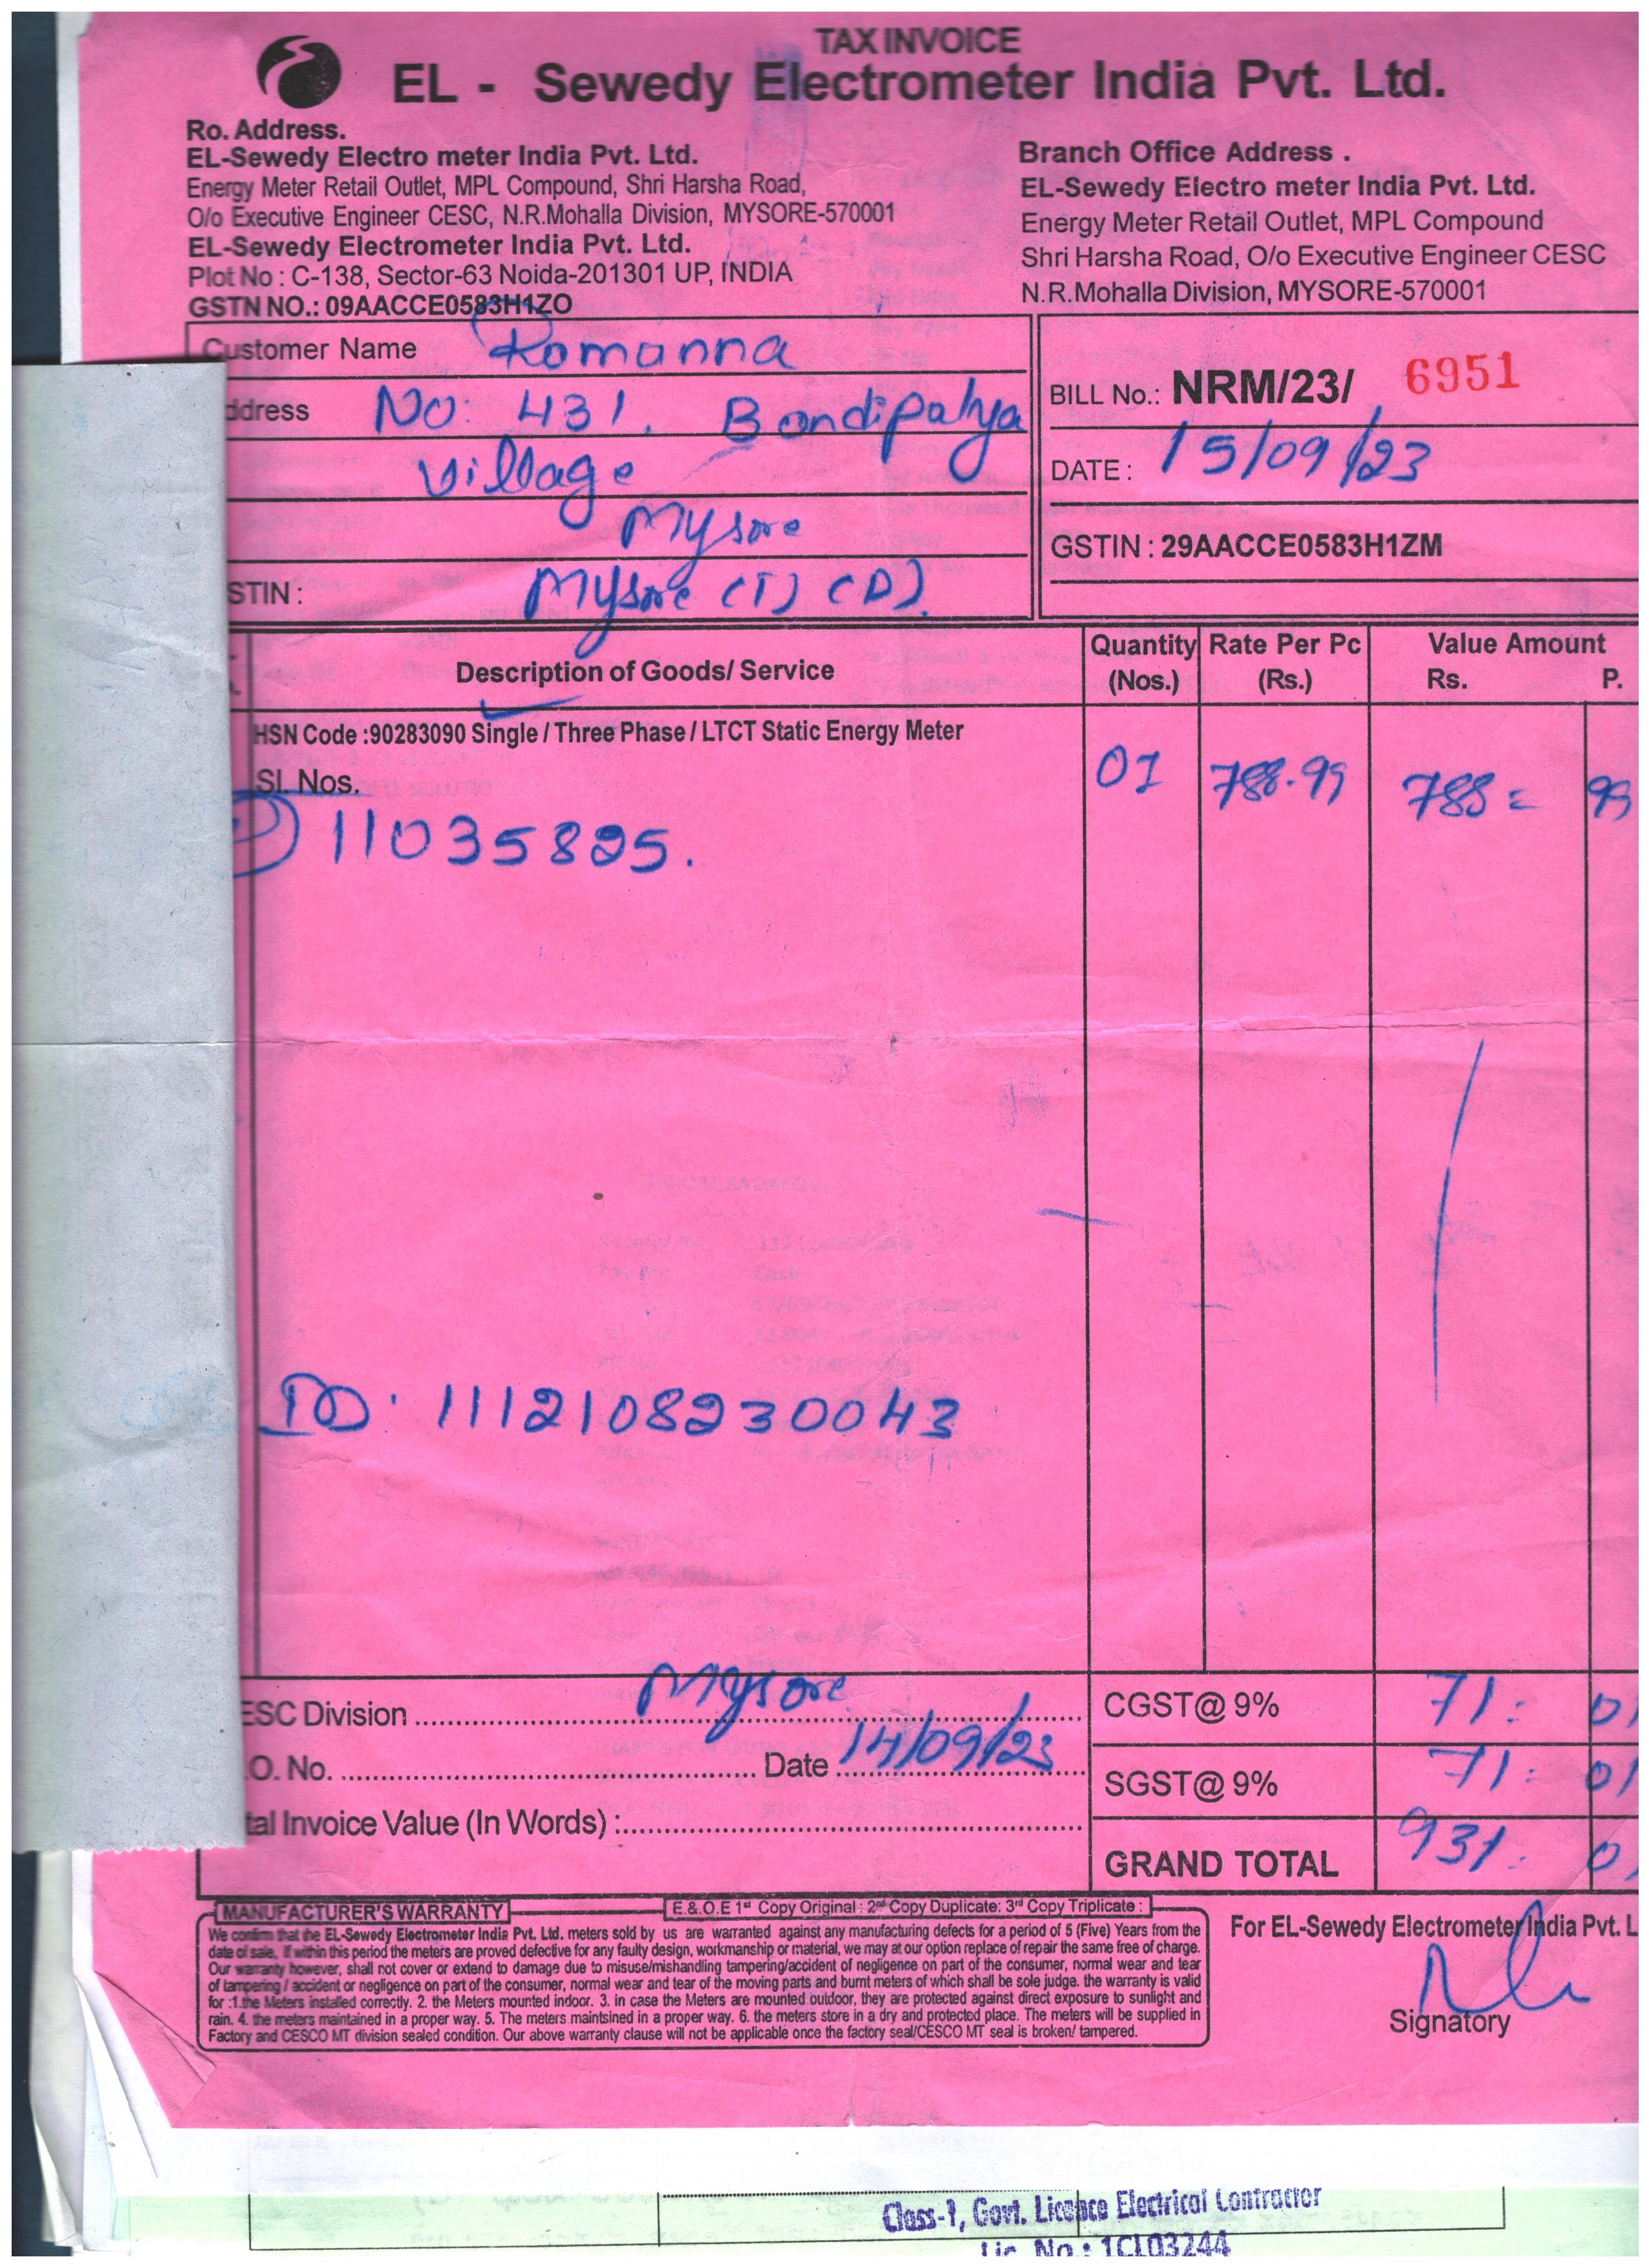 TAX INVOICE
EL - Sewedy Electrometer India Pvt. Ltd.
Ro. Address.
EL-Sewedy Electro meter India Pvt. Ltd.
Energy Meter Retail Outlet, MPL Compound, Shri Harsha Road,
O/o Executive Engineer CESC, N.R.Mohalla Division, MYSORE-570001
EL-Sewedy Electrometer India Pvt. Ltd.
Plot No : C-138, Sector-63 Noida-201301 UP, INDIA
GSTN NO.: 09AACCE0583H1ZO
Branch Office Address .
EL-Sewedy Electro meter India Pvt. Ltd.
Energy Meter Retail Outlet, MPL Compound
Shri Harsha Road, O/o Executive Engineer CESC
N.R.Mohalla Division, MYSORE-570001
Customer Name Romanna
ddress No: 431, Bandipalya
Village
Mysore
STIN : Mysore (T) (D).
BILL No.: NRM/23/ 6951
DATE : 15/09/23
GSTIN : 29AACCE0583H1ZM
Description of Goods/ Service Quantity (Nos.) Rate Per Pc (Rs.) Value Amount Rs. P.
HSN Code :90283090 Single / Three Phase / LTCT Static Energy Meter
Sl. Nos. 01 788.99 788 = 99
11035825.
ID: 1112108230043
ESC Division Mysore
.O. No. Date 14/09/23
tal Invoice Value (In Words) :
CGST@ 9% 71 : 01
SGST@ 9% 71 : 01
GRAND TOTAL 931 : 0
MANUFACTURER'S WARRANTY
E.&.O.E 1st Copy Original : 2nd Copy Duplicate: 3rd Copy Triplicate :
We confirm that the EL-Sewedy Electrometer India Pvt. Ltd. meters sold by us are warranted against any manufacturing defects for a period of 5 (Five) Years from the
date of sale, if within this period the meters are proved defective for any faulty design, workmanship or material, we may at our option replace of repair the same free of charge.
Our warranty however, shall not cover or extend to damage due to misuse/mishandling tampering/accident of negligence on part of the consumer, normal wear and tear
of tampering / accident or negligence on part of the consumer, normal wear and tear of the moving parts and burnt meters of which shall be sole judge. the warranty is valid
for :1.the Meters installed correctly. 2. the Meters mounted indoor. 3. in case the Meters are mounted outdoor, they are protected against direct exposure to sunlight and
rain. 4. the meters maintained in a proper way. 5. The meters maintsined in a proper way. 6. the meters store in a dry and protected place. The meters will be supplied in
Factory and CESCO MT division sealed condition. Our above warranty clause will not be applicable once the factory seal/CESCO MT seal is broken/ tampered.
For EL-Sewedy Electrometer India Pvt. L
Signatory
Class-1, Govt. Licence Electrical Contractor
Lic. No.: 1CL03244